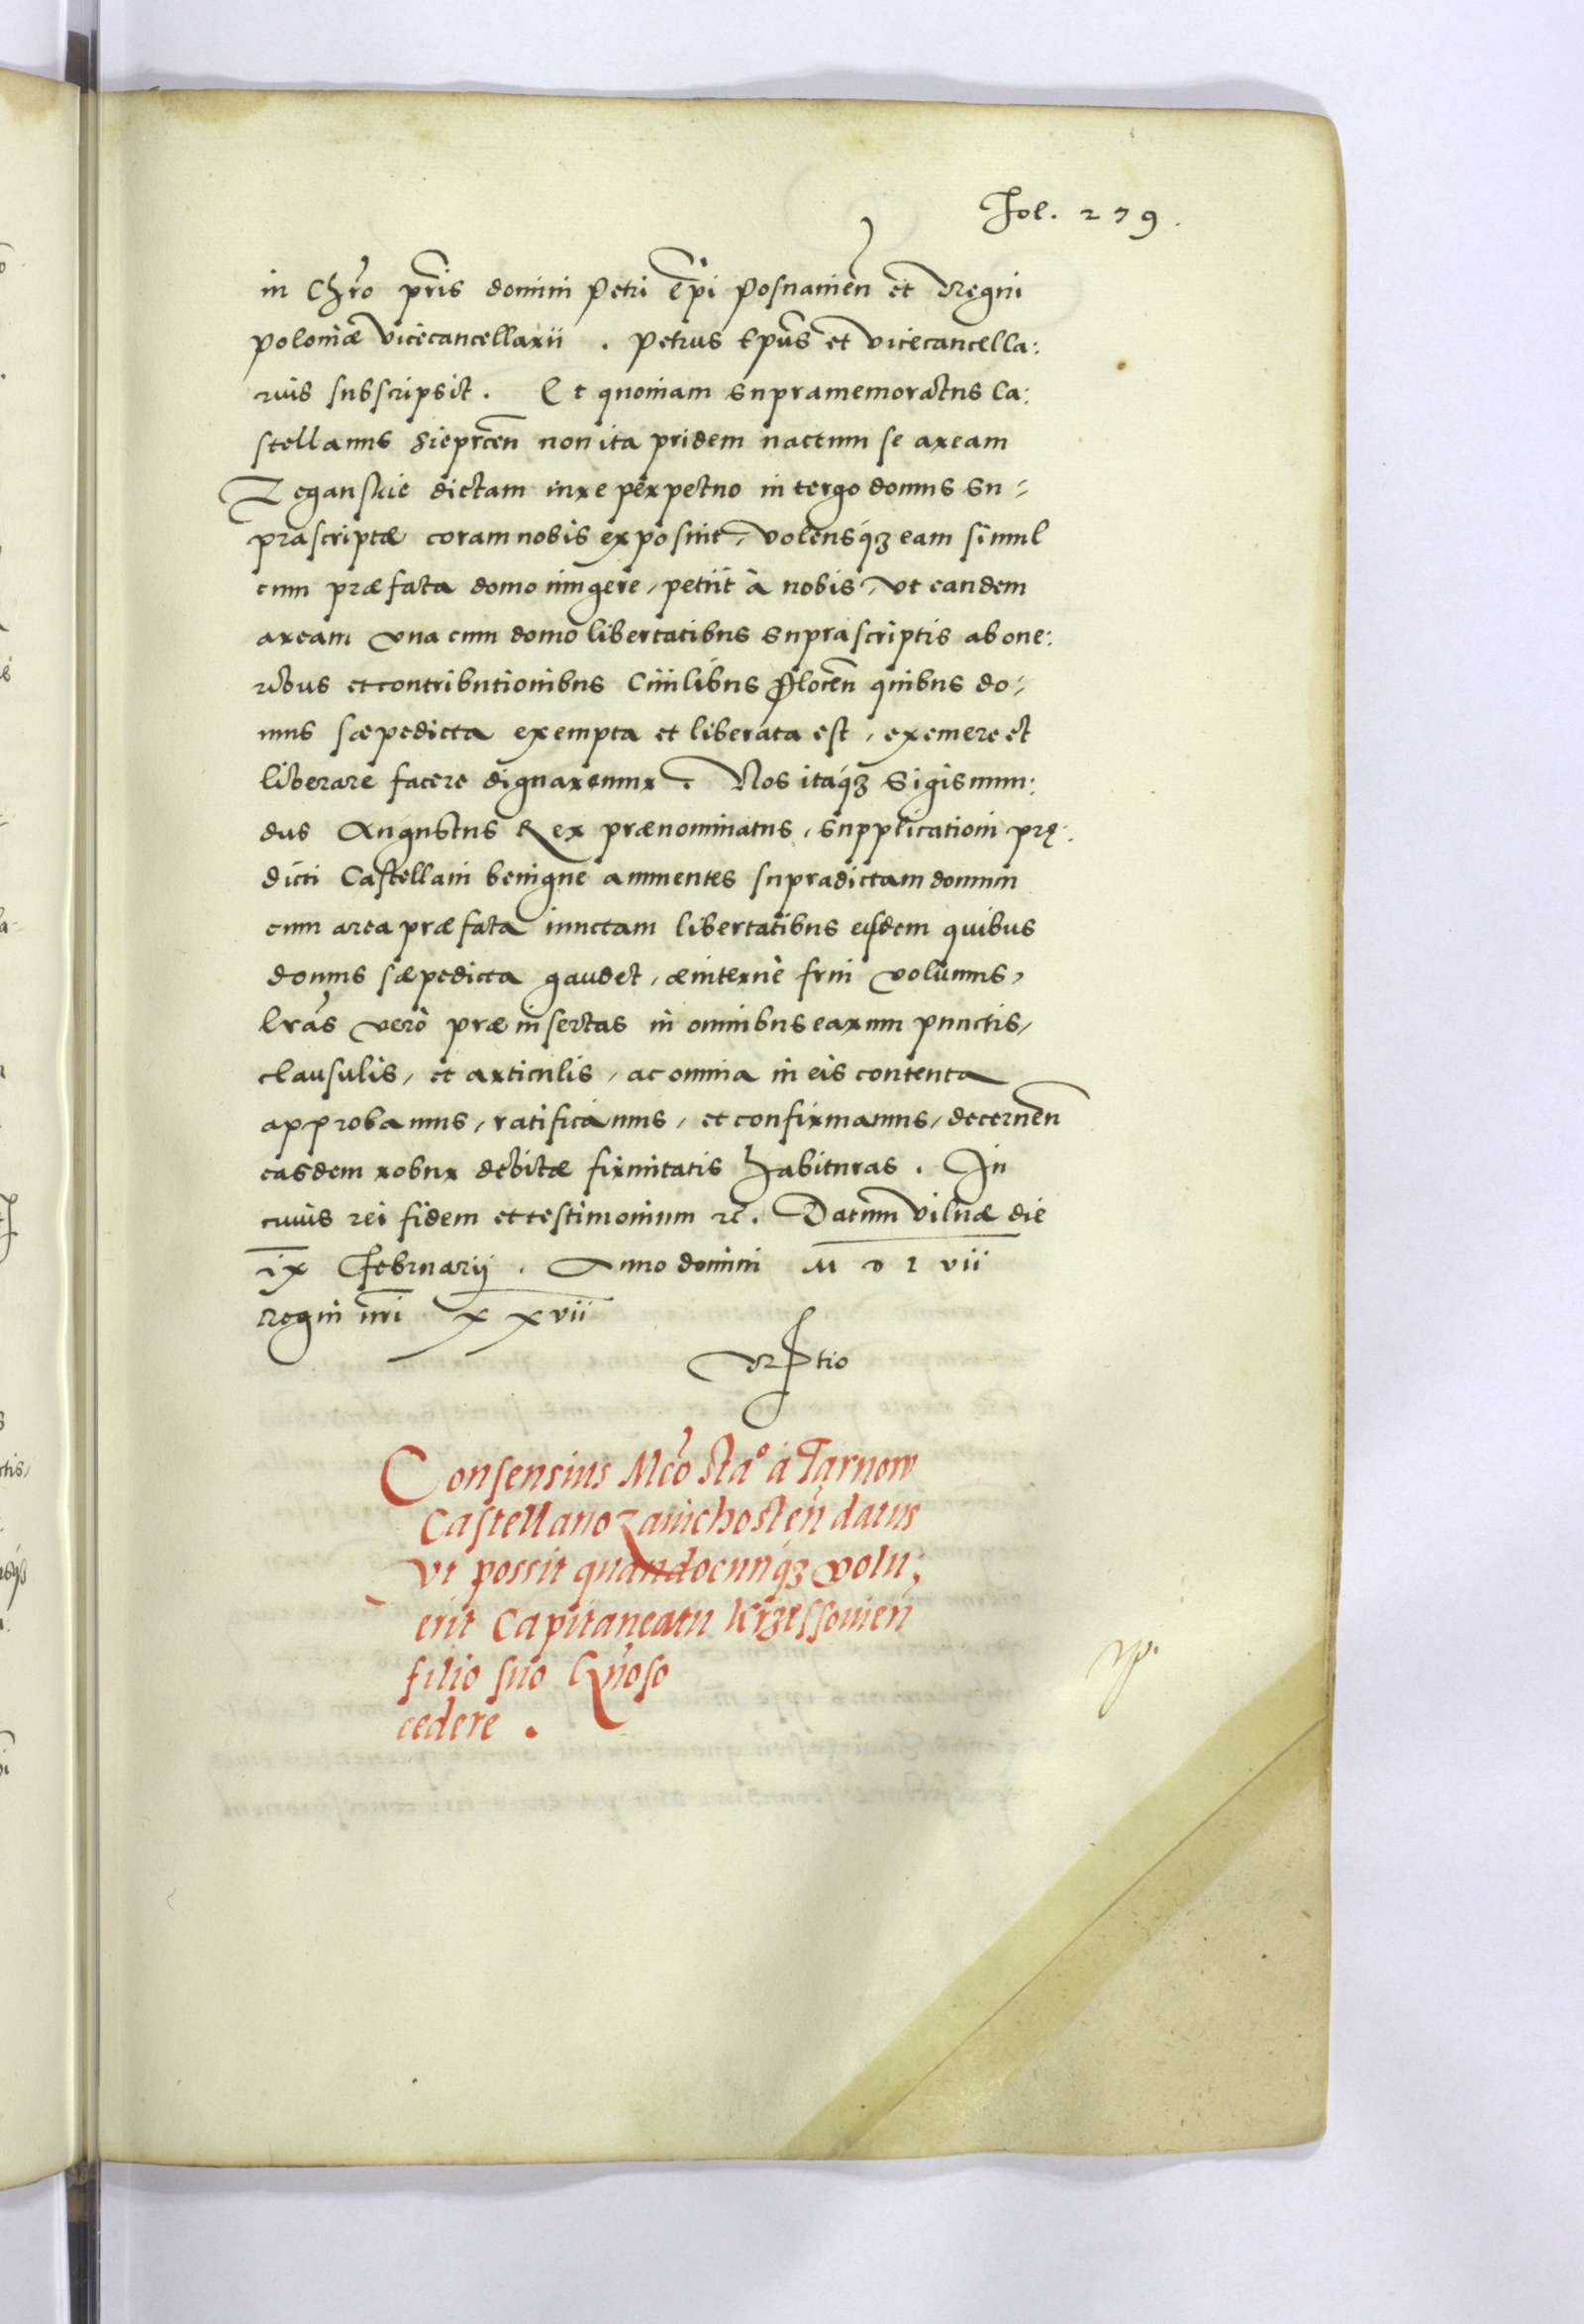 Fol. 279.
in Chro pris domini Petri Epi Posnanien et Regni
Poloniæ Vicecancellarii . Petrus Epus et Vicecancella:
rius subscripsit . Et quoniam supramemoratus Ca:
stellanus Sieprcen non ita pridem nactum se aream
Zeganskie dictam iure perpetuo in tergo domus su-
prascriptæ coram nobis exposuit, Volensq́ꝫ eam simul
cum præfata domo iungere, petiit à nobis, Vt eandem
aream vna cum domo libertatibus suprascriptis ab one:
ribus et contributionibus Ciuilibus Plocen quibus do-
mus sæpedicta exempta et liberata est, eximere et
liberare facere dignaremur . Nos itaq́ꝫ Sigismun:
dus Augustus Rex prænominatus, supplicationi prę:
dicti Castellani benigne annuentes supradictam domum
cum area præfata iunctam libertatibus eisdem quibus
domus sæpedicta gaudet, æuiternè frui volumus,
lras verò præinsertas in omnibus earum punctis,
clausulis, et articulis, ac omnia in eis contenta
approbamus, ratificamus, et confirmamus, decernen
easdem robur debitæ firmitatis habituras . In
cuius rei fidem et testimonium ꝛc. Datum Vilnæ die
ix Februarij . Anno domini M D L vii
Regni nri xxvii
Consensus Mco Sta° à Tarnow
Castellano Zauichosten datus
Vt possit quandocunq́ꝫ volu:
erit Capitaneatu Krzessouien
filio suo Gnoso
cedere .